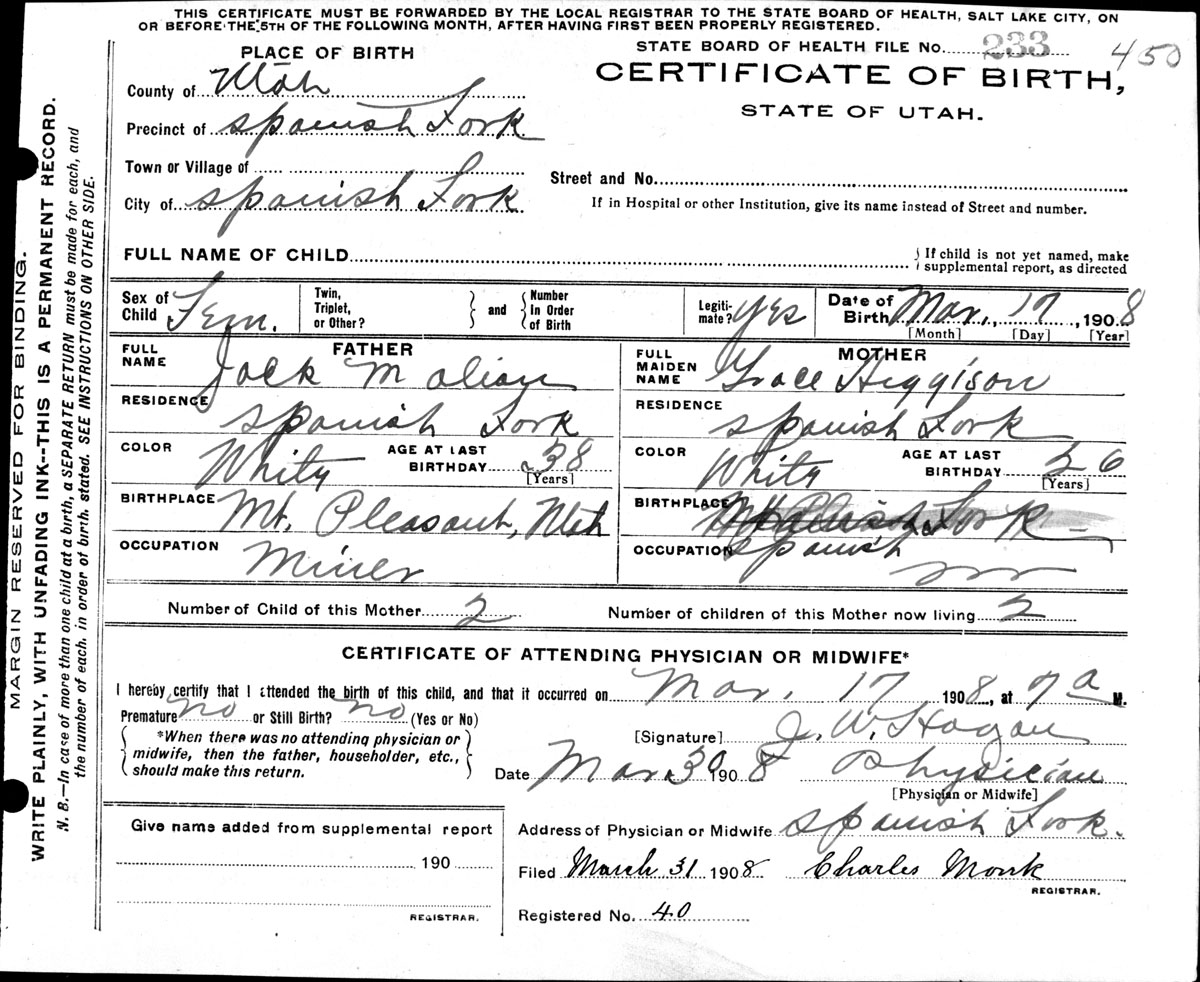 THIS CERTIFICATE MUST BE FORWARDED BY THE LOCAL REGISTRAR TO THE STATE BOARD OF HEALTH, SALT LAKE CITY, ON
OR BEFORE THE 5TH OF THE FOLLOWING MONTH, AFTER HAVING FIRST BEEN PROPERLY REGISTERED.
PLACE OF BIRTH
STATE BOARD OF HEALTH FILE No. 233 450
CERTIFICATE OF BIRTH,
STATE OF UTAH.
County of Utah
Precinct of Spanish Fork
Town or Village of
City of Spanish Fork
Street and No.
If in Hospital or other Institution, give its name instead of Street and number.
FULL NAME OF CHILD
If child is not yet named, make
supplemental report, as directed
Sex of
Child Fem.
Twin,
Triplet,
or Other?
and
Number
In Order
of Birth
Legiti-
mate? Yes
Date of
Birth Mar. 17, 1908
[Month] [Day] [Year]
FATHER
FULL
NAME Jack
RESIDENCE
Spanish Fork
COLOR White
AGE AT LAST
BIRTHDAY 38
[Years]
BIRTHPLACE Mt. Pleasant, Utah
OCCUPATION Miner
MOTHER
FULL
MAIDEN
NAME Grace Higgison
RESIDENCE
Spanish Fork
COLOR White
AGE AT LAST
BIRTHDAY 26
[Years]
BIRTHPLACE Fork
OCCUPATION Spanish
Number of Child of this Mother 2
Number of children of this Mother now living 2
CERTIFICATE OF ATTENDING PHYSICIAN OR MIDWIFE*
I hereby certify that I attended the birth of this child, and that it occurred on Mar. 17 1908, at 7 a M.
Premature No or Still Birth? No (Yes or No)
*When there was no attending physician or
midwife, then the father, householder, etc.,
should make this return.
[Signature] J. W. Hagan
Date Mar 30 1908 Physician
[Physician or Midwife]
Give name added from supplemental report
190
REGISTRAR.
Address of Physician or Midwife Spanish Fork.
Filed March 31 1908 Charles Monk
REGISTRAR.
Registered No. 40
MARGIN RESERVED FOR BINDING.
WRITE PLAINLY, WITH UNFADING INK--THIS IS A PERMANENT RECORD.
N. B.—In case of more than one child at a birth, a SEPARATE RETURN must be made for each, and
the number of each, in order of birth, stated. SEE INSTRUCTIONS ON OTHER SIDE.